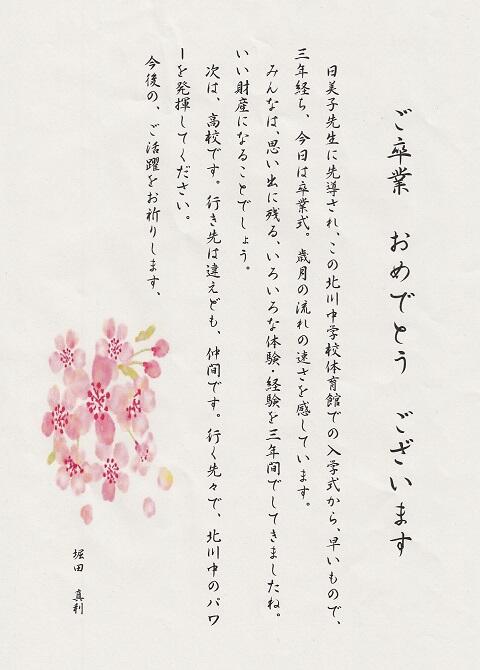 ご卒業　おめでとう　ございます
日美子先生に先導され、この北川中学校体育館での入学式から、早いもので、
三年経ち、今日は卒業式。歳月の流れの速さを感じています。
みんなは、思い出に残る、いろいろな体験・経験を三年間でしてきましたね。
いい財産になることでしょう。
次は、高校です。行き先は違えども、仲間です。行く先々で、北川中のパワ
ーを発揮してください。
今後の、ご活躍をお祈りします、
堀田　真利